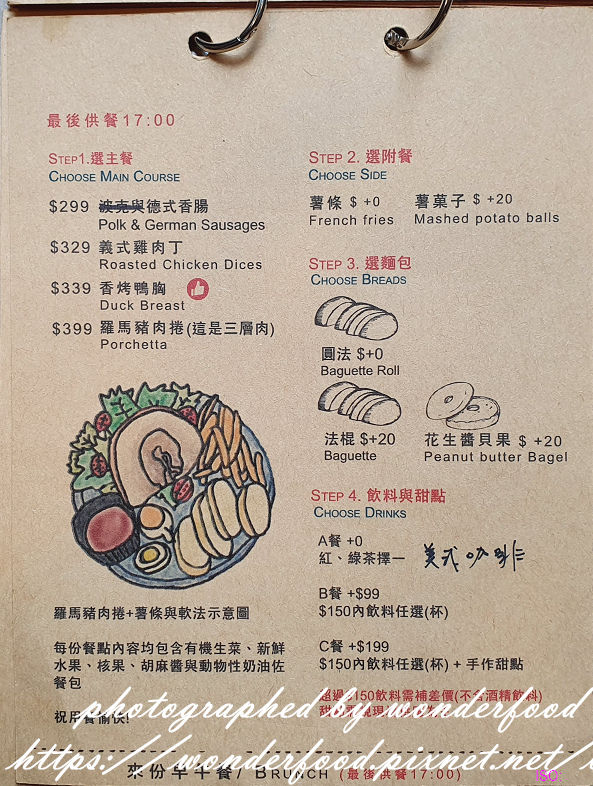 最後供餐17:00
STEP1.選主餐
CHOOSE MAIN COURSE
$299 波克與德式香腸
Polk & German Sausages
$329 義式雞肉丁
Roasted Chicken Dices
$339 香烤鴨胸
Duck Breast
$399 羅馬豬肉捲(這是三層肉)
Porchetta
羅馬豬肉捲+薯條與軟法示意圖
每份餐點內容均包含有機生菜、新鮮
水果、核果、胡麻醬與動物性奶油佐
餐包
祝用餐愉快!
STEP 2. 選附餐
CHOOSE SIDE
薯條 $ +0 薯菓子 $ +20
French fries Mashed potato balls
STEP 3. 選麵包
CHOOSE BREADS
圓法 $+0
Baguette Roll
法棍 $+20 花生醬貝果 $ +20
Baguette Peanut butter Bagel
STEP 4. 飲料與甜點
CHOOSE DRINKS
A餐 +0
紅、綠茶擇一 美式咖啡
B餐 +$99
$150內飲料任選(杯)
C餐 +$199
$150內飲料任選(杯) + 手作甜點
超過$150飲料需補差價(不含酒精飲料)
photographed by wonderfood
https://wonderfood.pixnet.net/
來份早午餐/ BRUNCH (最後供餐17:00)
ISCI